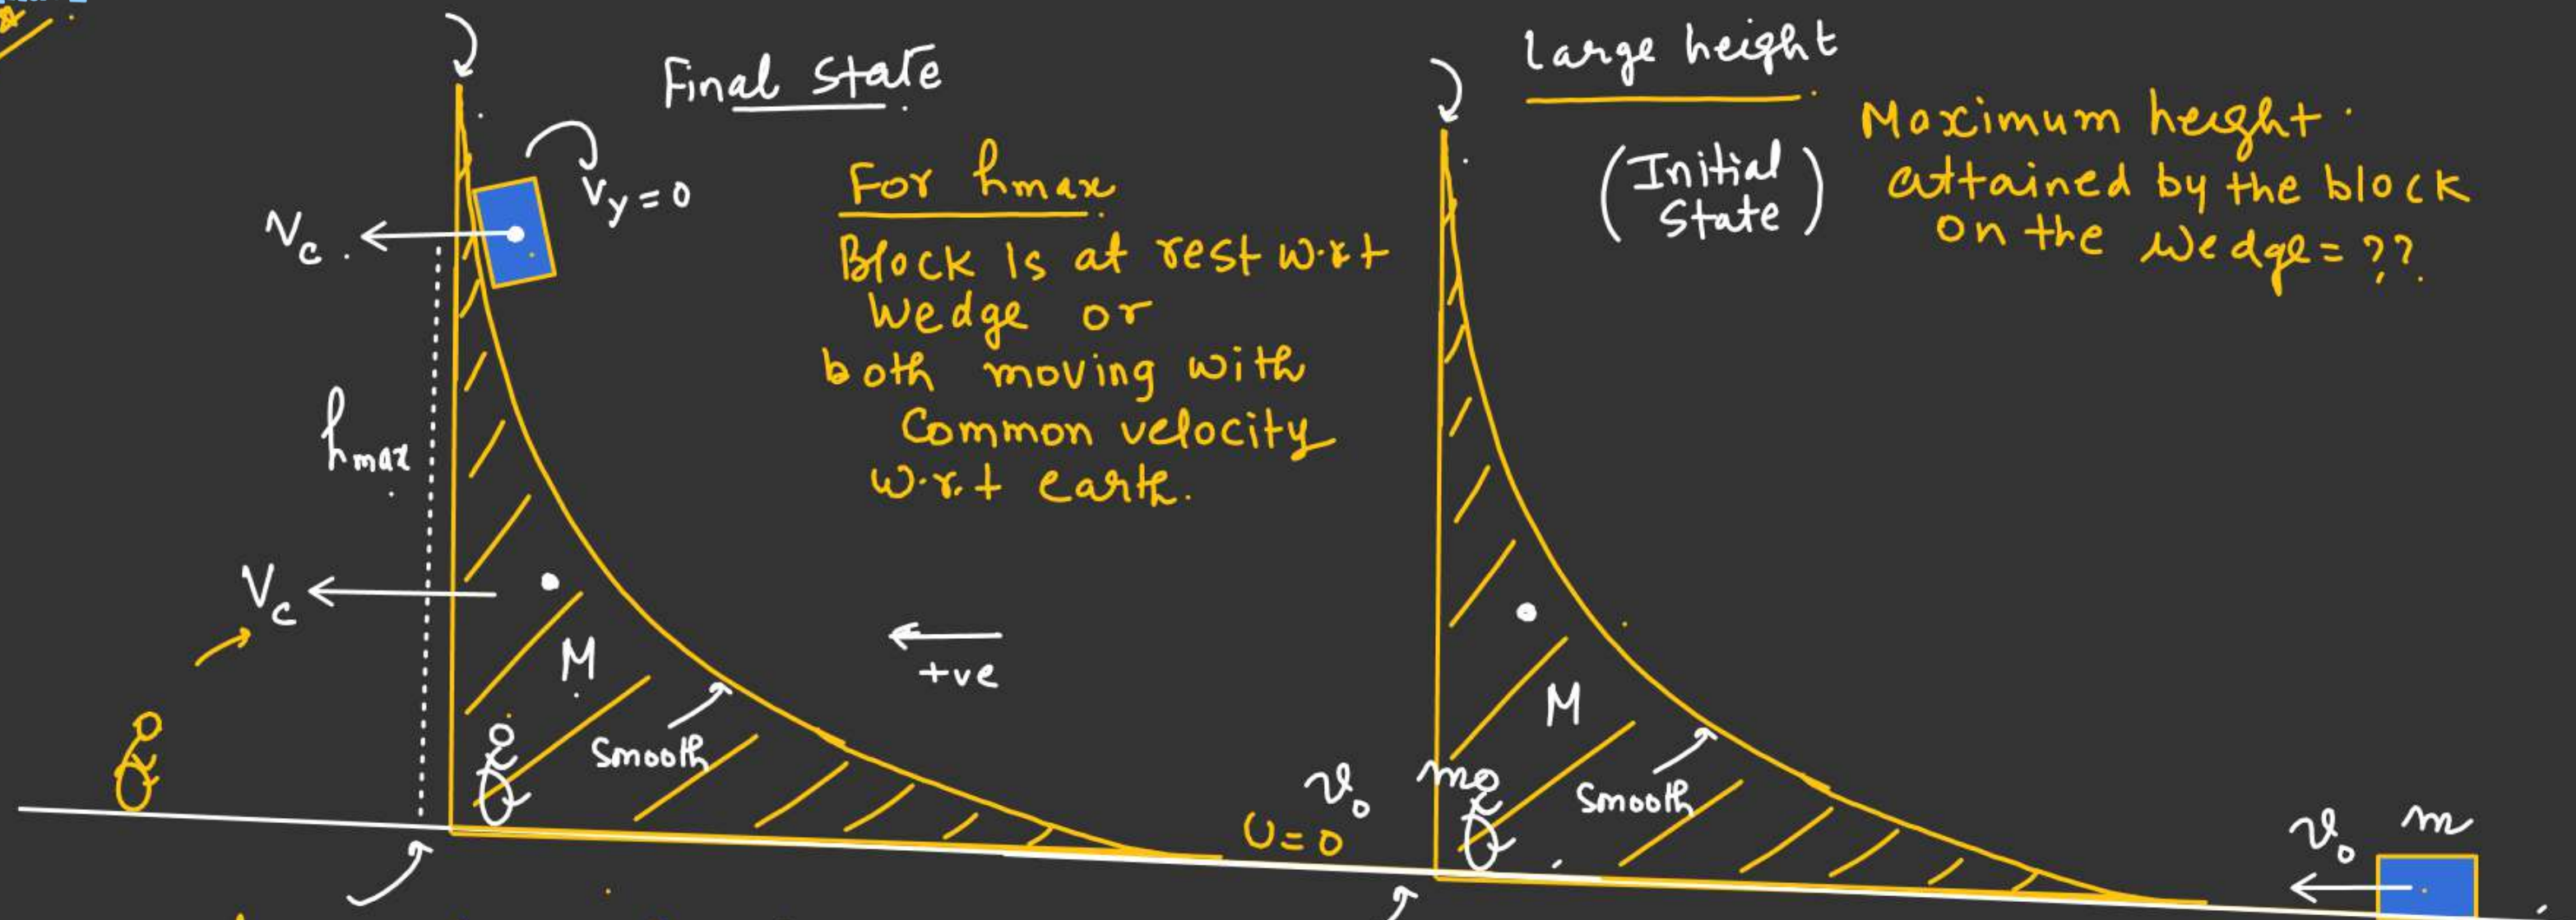 Final State
Vy = 0
Vc
For hmax
Block is at rest w.r.t
wedge or
both moving with
Common velocity
w.r.t earth.
hmax
Vc
M
+ve
Smooth
U = 0
Large height
(Initial
State)
Maximum height
attained by the block
on the wedge = ??
v₀
M
Smooth
v₀
m